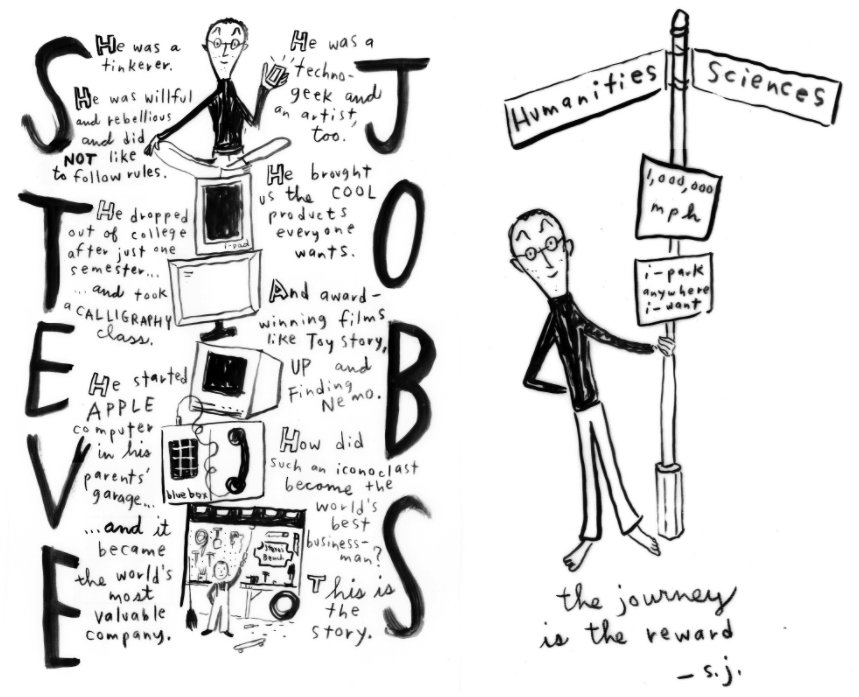 STEVE
He was a
tinkerer.
He was willful
and rebellious
and did
NOT like
to follow rules.
He dropped
out of college
after just one
semester...
...and took
a CALLIGRAPHY
class.
He started
APPLE
computer
in his
parents'
garage...
...and it
became
the world's
most
valuable
company.
i-pad
blue box
Steve's
Bench
JOBS
He was a
techno-
geek and
an artist,
too.
He brought
us the COOL
products
everyone
wants.
And award-
winning films
like Toy Story,
UP and
Finding
Nemo.
How did
such an iconoclast
become the
world's
best
business-
man?
This is
the
story.
Humanities
Sciences
1,000,000
mph
i-park
anywhere
i-want
the journey
is the reward
- s.j.